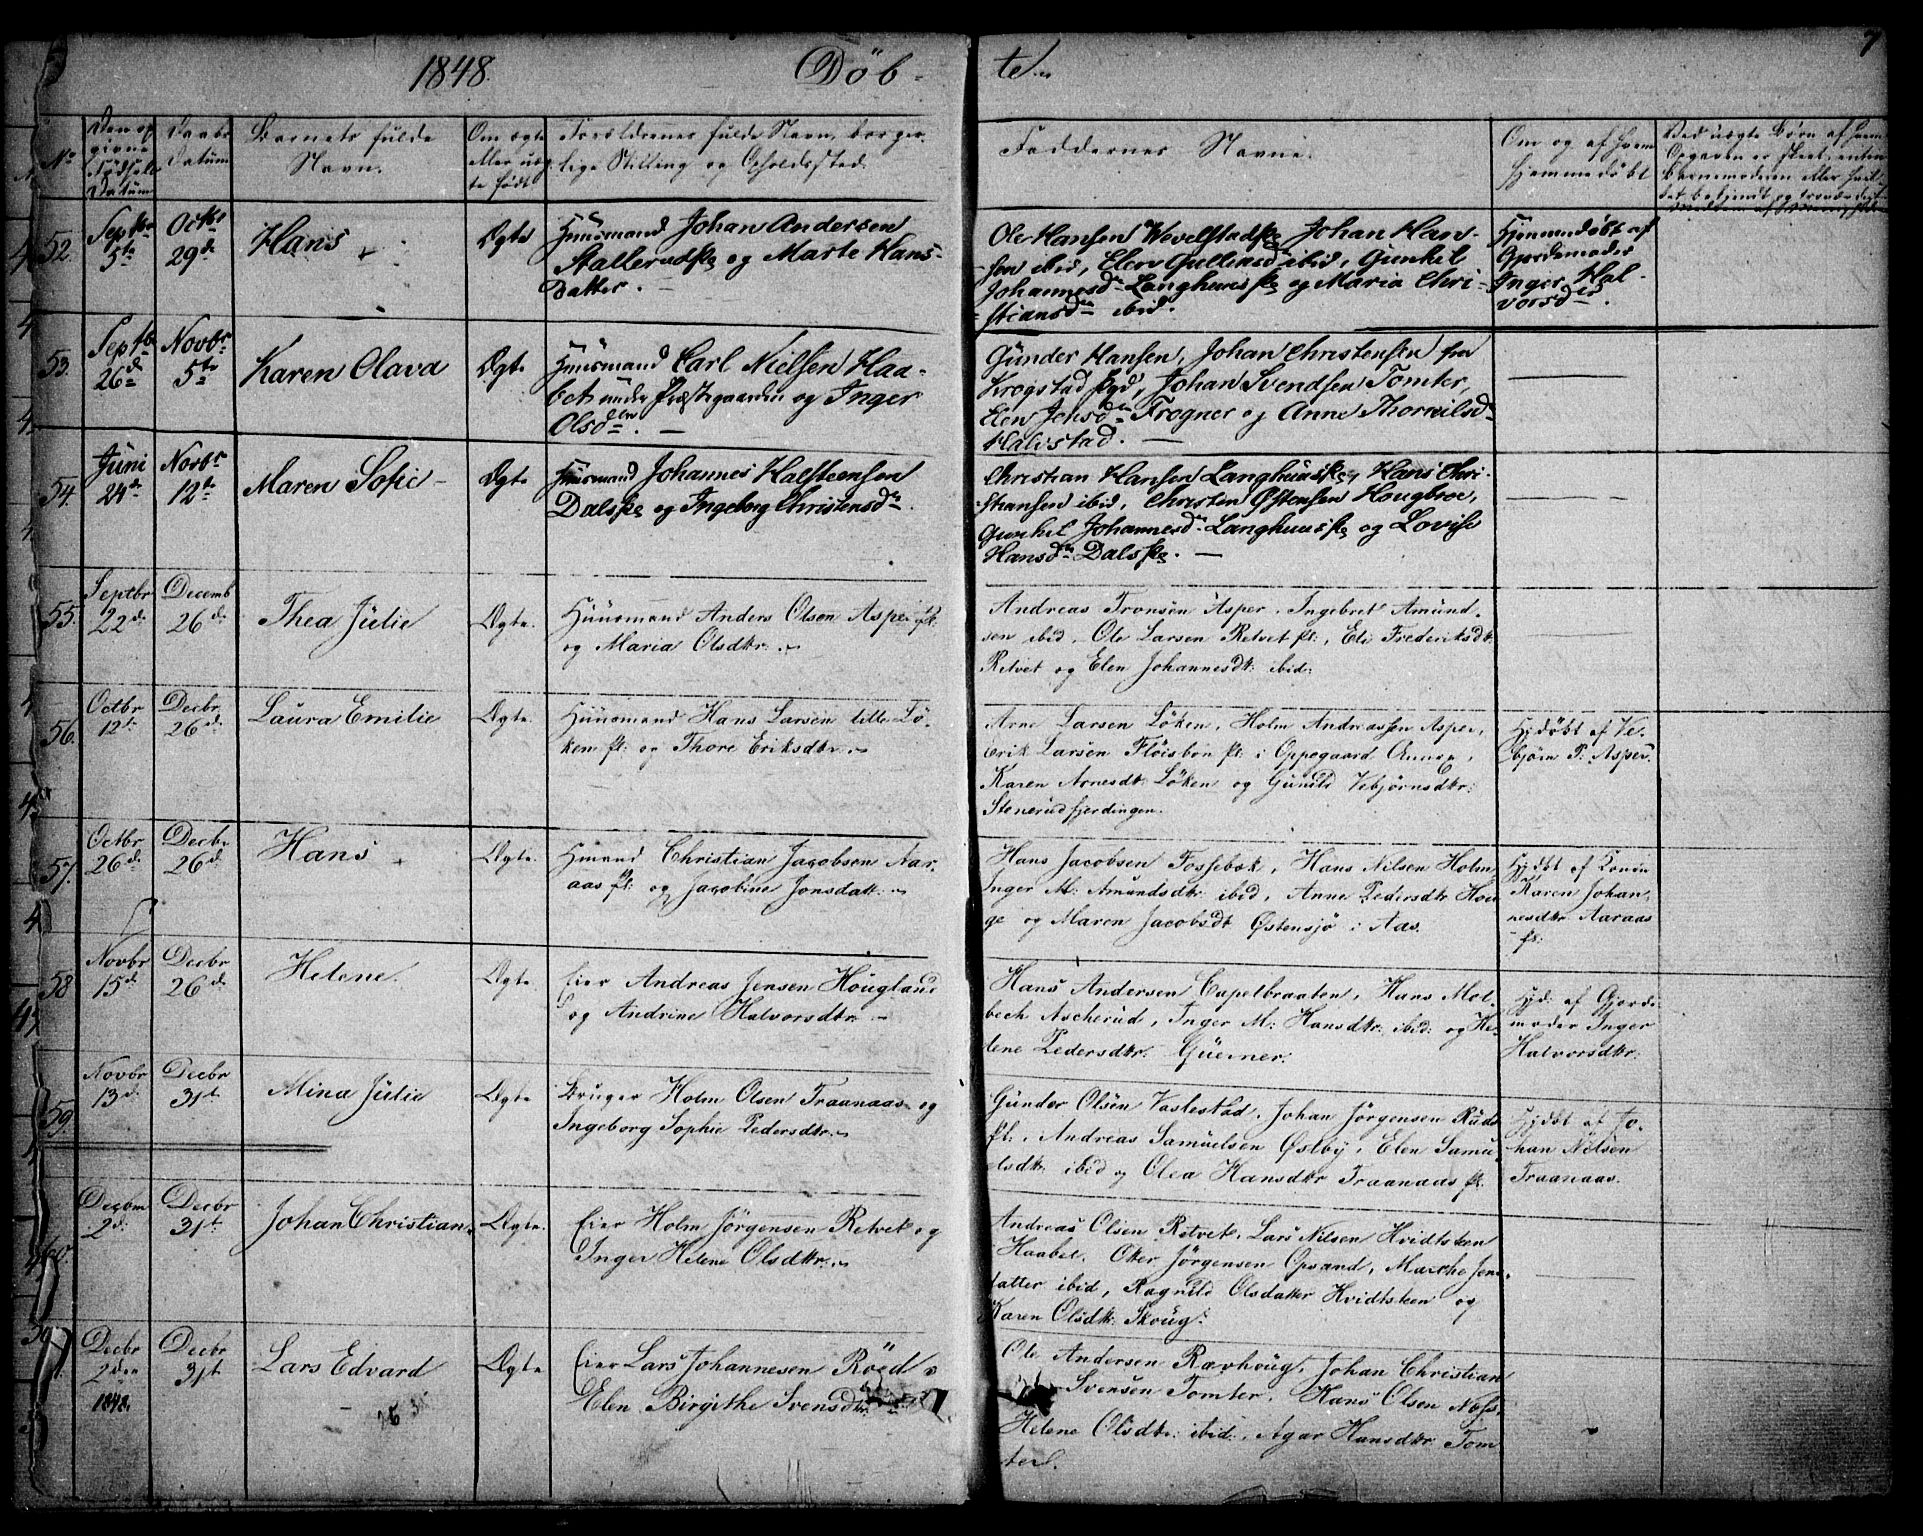 1848.
Döb-
te.
7
No
Den op
givne
Födsels
Datum
Daabs
Datum
Barnets fulde
Navn.
Om ægte
eller uæg
te født
Forældrenes fulde Navn, borger-
lige Stilling og Opholdssted.
Faddernes Navne.
Om og af hvem
hjemmedöbt
Ved uægte Børn af hvem
Opgaven er skeet, enten
Barnemoderen eller hvil-
52.
Septbr
5te
Octbr
29de
Hans
Ægte
Huusmand Johan Andersen
Stallerudske og Marte Hans-
Datter. —
Ole Hansen Wevelstadske, Johan Han-
sen ibid, Elen Gulliksd ibid, Gunhel
Johannesdr Langhuuske og Maria Chri-
stiansdr ibid.
Hjemmedøbt af
Gjordemoder
Inger Hal-
vorsdr.
53.
Septbr
26de
Novbr
5te
Karen Olava
Ægte
Huusmand Carl Nielsen Haa-
bet under Præstegaarden og Inger
Olsdr. —
Günder Hansen, Johan Christensen fra
Krogstad Sgd, Johan Svendsen Tomter,
Elen Jensdr Frogner og Anne Thorkilsdr
Halvstad. —
54.
Juni
24de
Novbr
12te
Maren Sofie
Ægte
Huusmand Johannes Halsteensen
Dalske og Ingeborg Christensdr.
Christian Hansen Langhuuske, Hans Chri-
stiansen ibid, Christen Østensen Hougbroe,
Gunhil Johannesdr Langhuuske og Lovise
Hansdr Dalske. —
55.
Septbr
22de
Decemb
26de
Thea Jülie
Ægte.
Huusmand Anders Olsen Asper pl:
og Maria Olsdtr:
Andreas Tronsen Asper, Ingebret Amünd-
sen ibid, Ole Larsen Retvet pl:, Eli Frederiksdtr
Retvet og Elen Johannesdtr: ibid:
56.
Octbr
12te
Decbr
26de
Laura Emilie
Ægte.
Huusmand Hans Larsen lille Lö-
ken pl: og Thore Eriksdtr.
Arne Larsen Löken, Holm Andreassen Asper,
Erik Larsen Flöisbon pl: i Oppegaard Annex,
Karen Arnesdtr: Löken og Gunild Vebjörnsdtr:
Stenerud fjerdingen.
Hjdöbt af Ve-
björn P. Asper.
57.
Octbr
26de
Decbr
26de
Hans
Ægte.
Hmand Christian Jacobsen Aar-
aas pl: og Jacobine Jonsdatr:
Hans Jacobsen Fossebæk, Hans Nilsen Holm,
Inger M: Amundsdtr: ibid, Anne Pedersdtr Hou-
ge og Maren Jacobsdt Østensjö i Aas.
Hjdbt af Konen
Karen Johan-
nesdtr Aaraas
pl:
58
Novbr
15de
Decbr
26de
Helene.
Ægte.
Eier Andreas Jensen Hougland
og Andrine Halvorsdtr:
Hans Andersen Capelbraaten, Hans Mol-
bech Ascherud, Inger M: Hansdtr: ibid: og He-
lene Pedersdtr. Güerner.
Hjd: af Gjorde-
moder Inger
Halvorsdtr:
59.
Novbr
13de
Decbr
31te
Mina Jülie
Ægte
Bruger Holm Olsen Traanaas og
Ingeborg Sophie Pedersdtr.
Günder Olsen Vaslestad, Johan Jörgensen Ruds
pl:, Andreas Samuelsen Østby, Elen Samu-
elsdtr: ibid og Olea Hansdtr Traanaas pl:
Hjdbt af Jo-
han Nilsen
Traanaas.
60.
Decbm
2de
Decbr
31te
Johan Christian
Ægte.
Eier Holm Jörgensen Retvet og
Inger Helene Olsdtr.
Andreas Olsen Retvet, Lars Nilsen Hvidtsteen
Haabet, Otter Jörgensen Opsand, Marthe Jens-
datter ibid, Ragnild Olsdatter Hvidtsteen og
Karen Olsdtr: Skoug.
Decbr
2den
1848.
Decbr
31te
Lars Edvard
Ægte
Eier Lars Johannesen Röed &
Elen Birgithe Svensdtr
Ole Andersen Ravhoug, Johan Christian
Svensen Tomter, Hans Olsen Næss,
Helene Olsdtr: ibid:, Agar Hansdtr Tom-
ter.